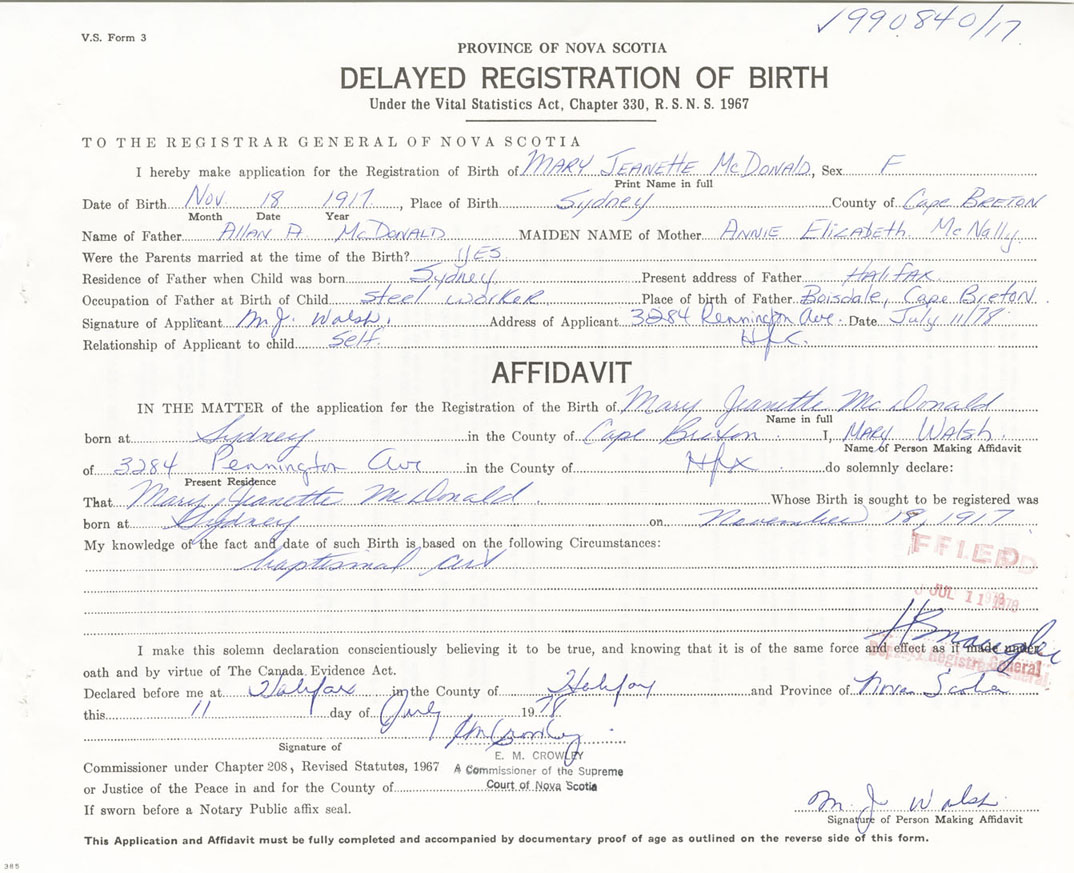 V.S. Form 3
990840/17
PROVINCE OF NOVA SCOTIA
DELAYED REGISTRATION OF BIRTH
Under the Vital Statistics Act, Chapter 330, R. S. N. S. 1967
TO THE REGISTRAR GENERAL OF NOVA SCOTIA
I hereby make application for the Registration of Birth of MARY JEANETTE McDONALD, Sex F
Print Name in full
Date of Birth Nov. 18 1917, Place of Birth Sydney County of Cape BRETON
Month Date Year
Name of Father Allan A. McDONALD MAIDEN NAME of Mother ANNIE Elizabeth McNally
Were the Parents married at the time of the Birth? YES
Residence of Father when Child was born Sydney Present address of Father Halifax
Occupation of Father at Birth of Child Steel Worker Place of birth of Father Boisdale, Cape Breton
Signature of Applicant M. J. Walsh Address of Applicant 3284 Pennington Ave. Date July 11/78
Hfx.
Relationship of Applicant to child Self
AFFIDAVIT
IN THE MATTER of the application for the Registration of the Birth of Mary Jeanette McDonald
Name in full
born at Sydney in the County of Cape Breton I, MARY WALSH
Name of Person Making Affidavit
of 3284 Pennington Ave in the County of Hfx do solemnly declare:
Present Residence
That Mary Jeanette McDonald Whose Birth is sought to be registered was
born at Sydney on November 18, 1917
My knowledge of the fact and date of such Birth is based on the following Circumstances:
baptismal cert
FILED
JUL 11 1978
I make this solemn declaration conscientiously believing it to be true, and knowing that it is of the same force and effect as if made under
Deputy Registrar General
oath and by virtue of The Canada Evidence Act.
Declared before me at Halifax in the County of Halifax and Province of Nova Scotia
this 11 day of July 1978
EM Crowley
Signature of
E. M. CROWLEY
Commissioner under Chapter 208, Revised Statutes, 1967 A Commissioner of the Supreme
or Justice of the Peace in and for the County of Court of Nova Scotia
If sworn before a Notary Public affix seal.
M. J. Walsh
Signature of Person Making Affidavit
This Application and Affidavit must be fully completed and accompanied by documentary proof of age as outlined on the reverse side of this form.
385